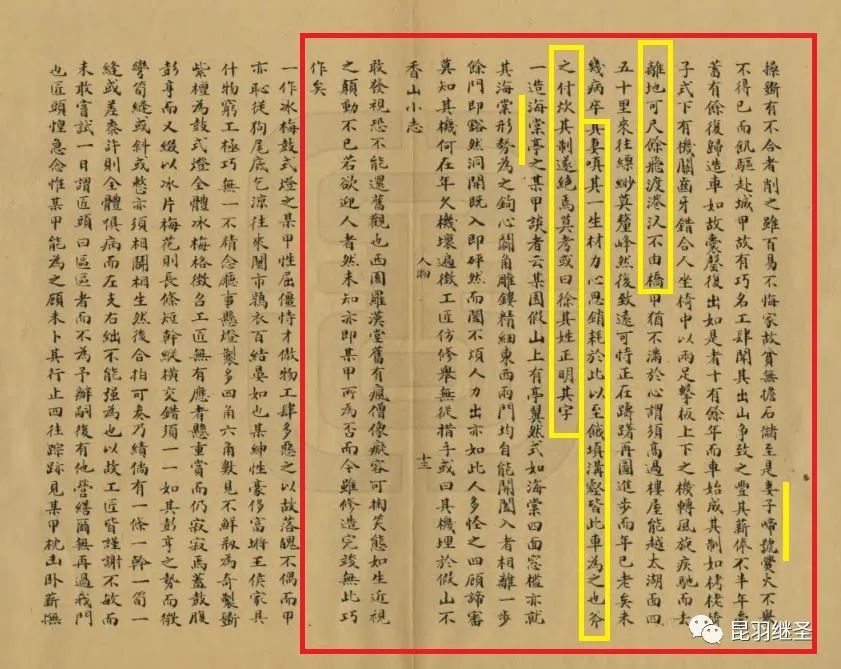 操斷有不合者削之雖百易不悔家故貧無擔石儲至是妻子啼號爨火不舉
不得已而飢驅赴城甲故有巧名工肆聞其出山爭致之豐其薪俸不半年
蓄有餘復歸造車如故囊罄復出如是者十有餘年而車始成其制如栲栳
子式下有機關齒牙錯合人坐椅中以兩足擊板上下之機轉風旋疾馳而去
離地可尺餘飛渡港汊不由橋甲猶不滿於心謂須高過樓屋能越太湖面四
五十里來往縹緲莫釐峰然後致遠可恃正在躊躇再圖進步而年已老矣未
幾病卒其妻嗔其一生材力心思銷耗於此以至餓填溝壑皆此車為之也斧
之付炊其制遂絕焉莫考或曰徐其姓正明其字
一造海棠亭之某甲談者云某園假山上有亭翼然式如海棠四面窗檻亦就
其海棠形勢為之鉤心鬬角雕鏤精細東西兩門均自能開闔入者相離一步
餘門即豁然洞開既入即砰然而闔不煩人力出亦如此人多怪之四顧諦審
莫知其機何在年久機壞遍徵工匠仿修舉無從措手或曰其機埋於假山不
香山小志
人物
十三
敢發視恐不能還舊觀也西園羅漢堂舊有瘋僧像癡容可掬笑態如生近視
之顛動不已若欲迎人者然未知亦即某甲所為否而今雖修造完竣無此巧
作矣
一作冰梅鼓式燈之某甲性屈僵恃才傲物工肆多惡之以故落魄不偶而甲
亦恥從狗尾底乞涼往來闤市鶉衣百結晏如也某紳性豪侈富埒王侯家具
什物窮工極巧無一不精念廳事懸燈製多四角六角數見不鮮擬為奇製斵
紫檀為鼓式燈全體冰梅格徵召工匠無有應者懸重賞而仍寂寂焉蓋鼓腹
彭亨而又綴以冰片梅花則長條短幹縱橫交錯須一一如其彭亨之勢而微
彎筍縫或斜或整亦須相關相生然後合拍可奏乃績倘有一條一幹一筍一
縫或差黍許則全體俱病而左支右絀不能強為也以故工匠皆謹謝不敏而
未敢嘗試一日謂匠頭曰區區者而不為予辦嗣後有他營繕爾無再過我門
也匠頭惶急念惟某甲能為之顧未卜其行止四往蹤跡見某甲枕凷臥薪撫
昆羽继圣